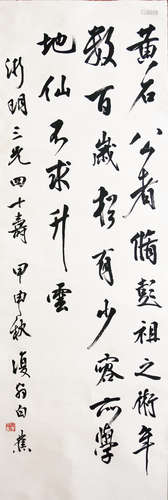 黄石公者備彭祖之術年
数百歲猶有少容所學
地仙不求升雲
淅明三光四十壽 甲申秋 復翁白蕉